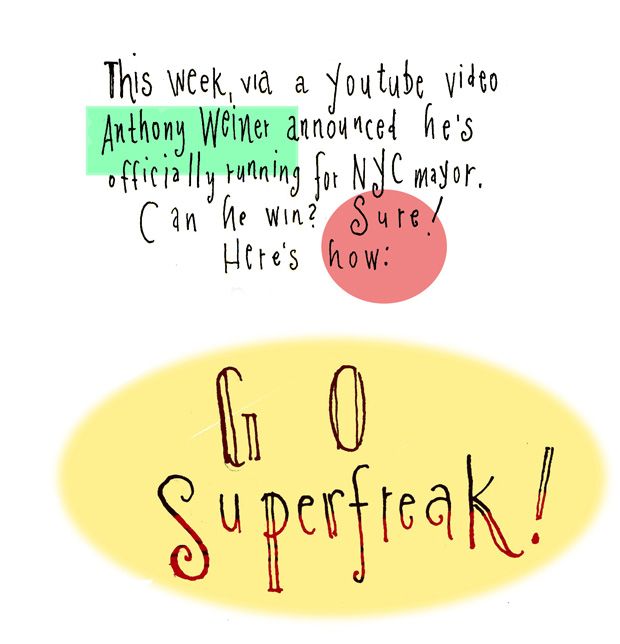 This week, via a Youtube video
Anthony Weiner announced he's
officially running for NYC mayor.
Can he win? Sure!
Here's how:
GO
Superfreak!